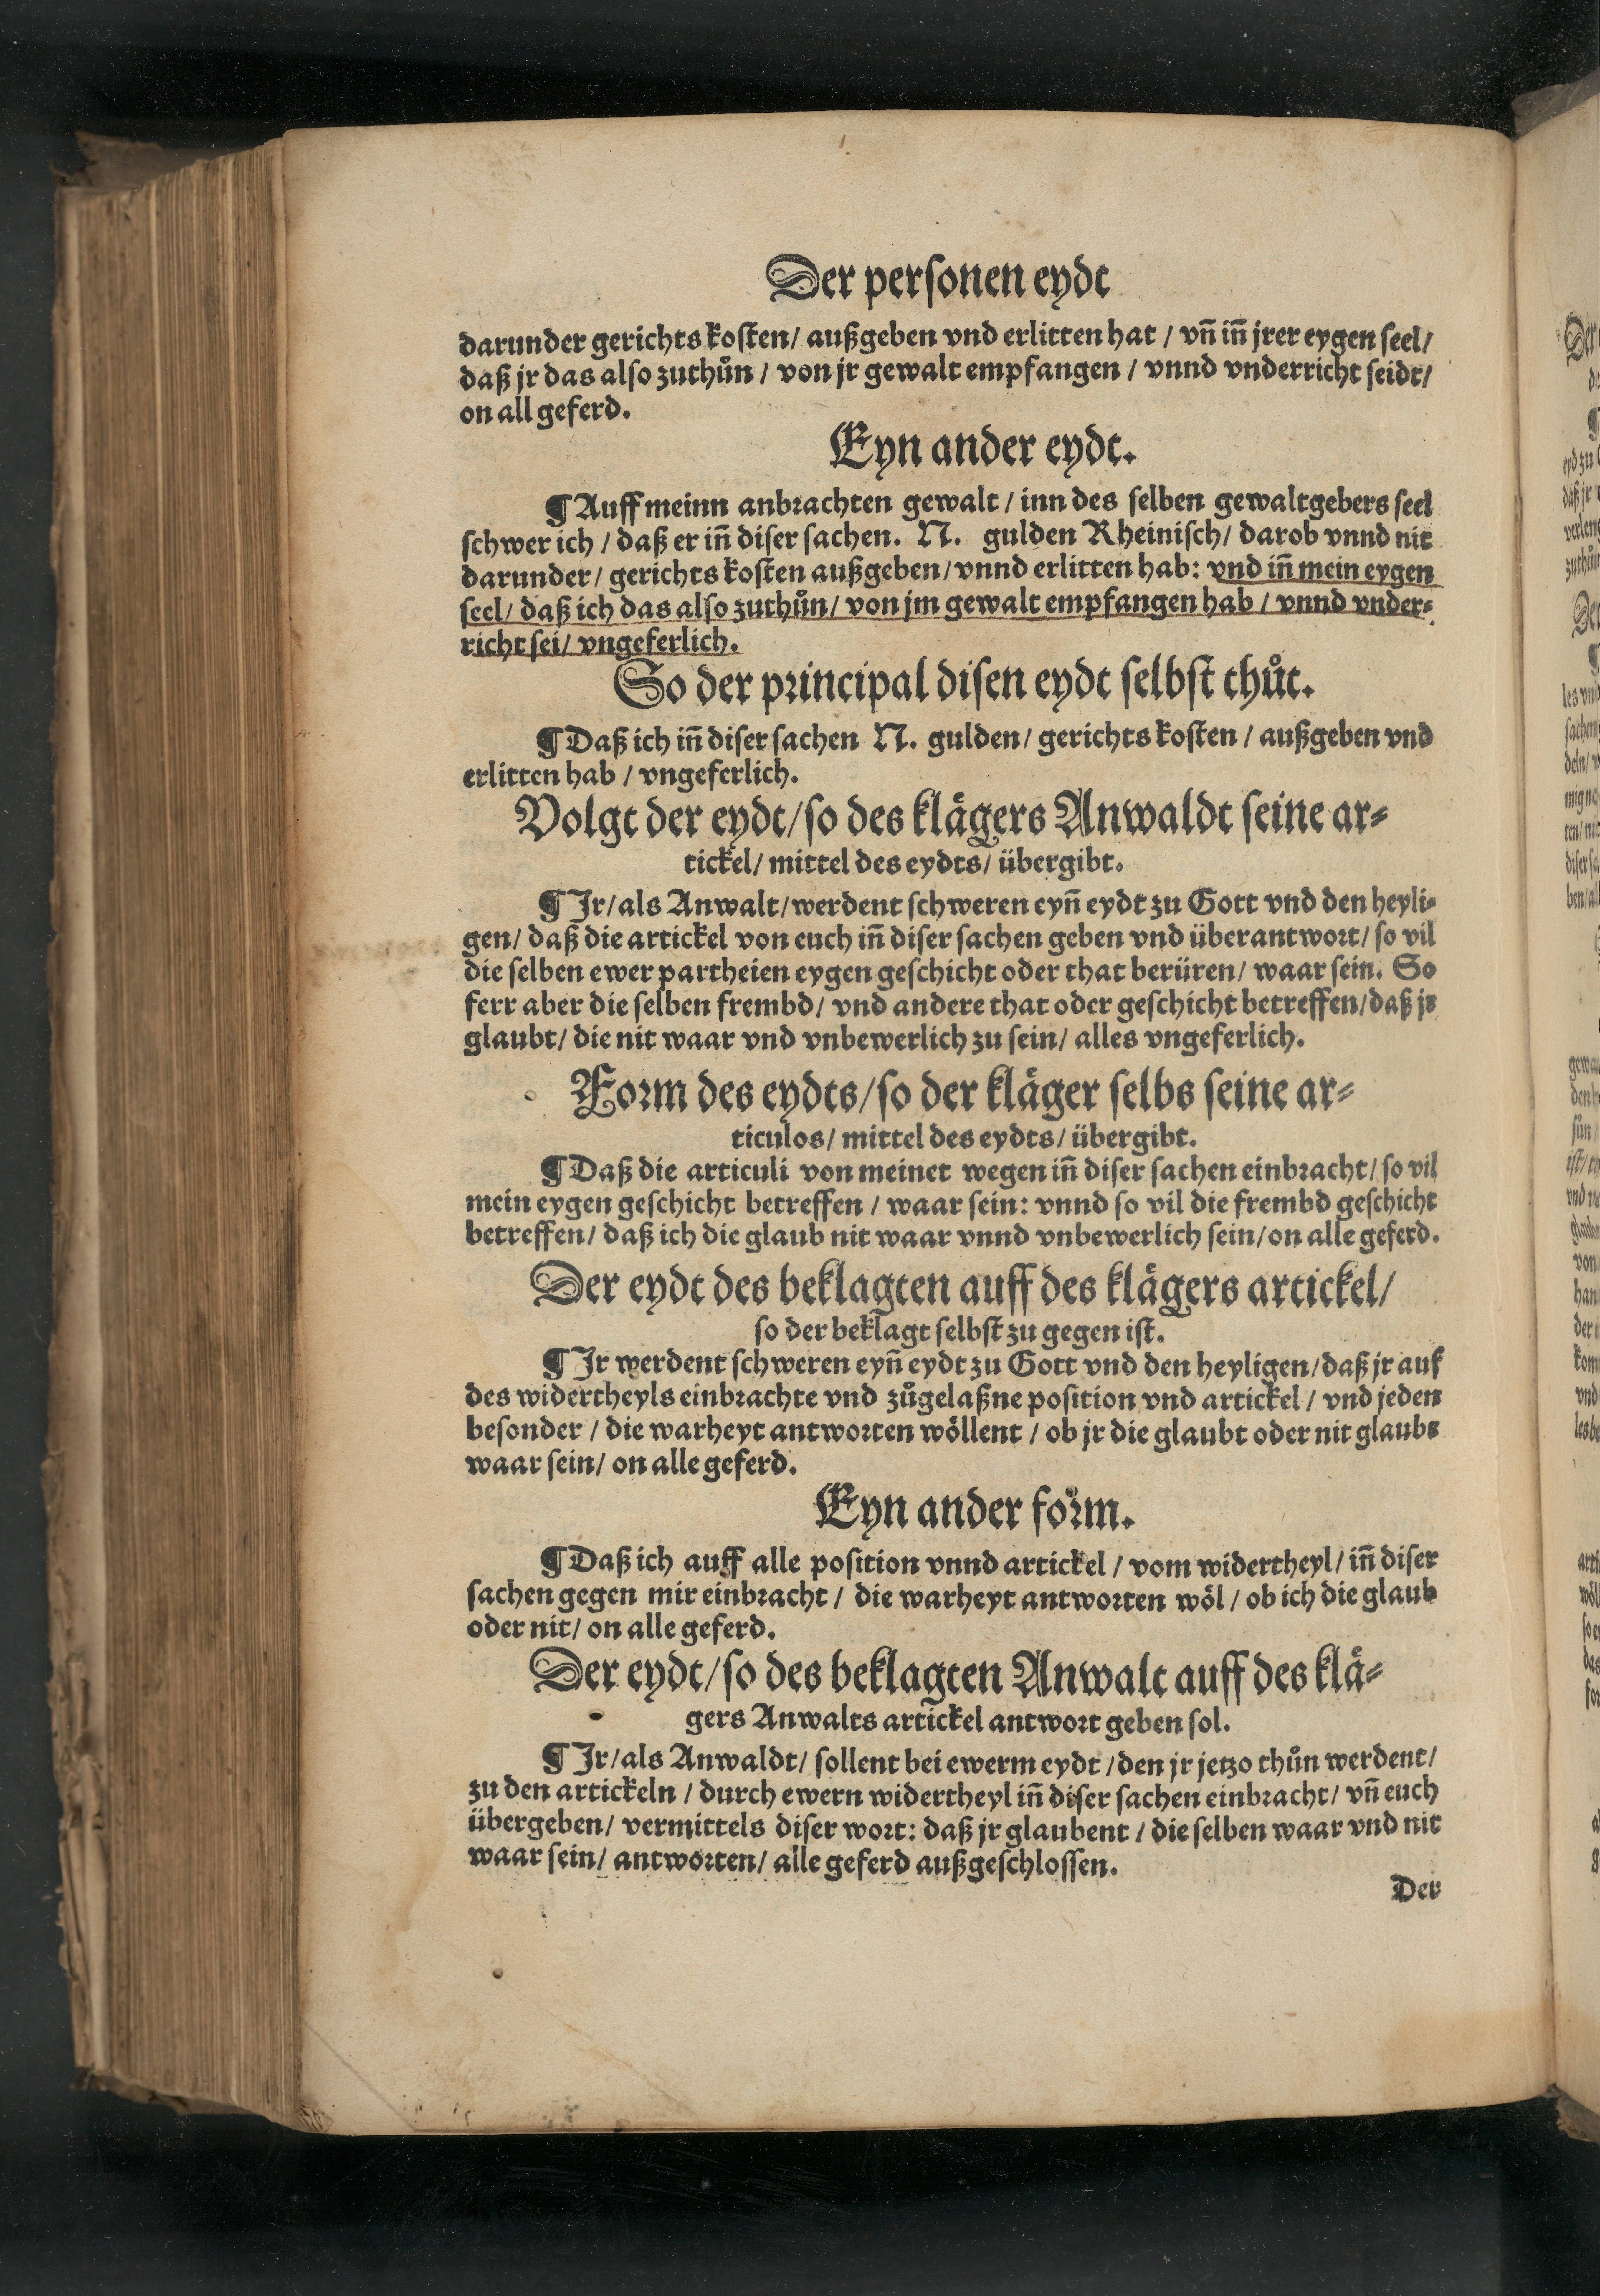 Der personen eydt
darunder gerichts kosten/ außgeben vnd erlitten hat / vñ iñ jrer eygen seel/
daß jr das also zuthůn / von jr gewalt empfangen / vnnd vnderricht seidt/
on all geferd.
Eyn ander eydt.
¶ Auff meinn anbrachten gewalt / inn des selben gewaltgebers seel
schwer ich / daß er iñ diser sachen. N. gulden Rheinisch/ darob vnnd nit
darunder/ gerichts kosten außgeben/ vnnd erlitten hab: vnd iñ mein eygen
seel/ daß ich das also zuthůn/ von jm gewalt empfangen hab / vnnd vnder⸗
richt sei/ vngeferlich.
So der principal disen eydt selbst thůt.
¶ Daß ich iñ diser sachen N. gulden/ gerichts kosten / außgeben vnd
erlitten hab / vngeferlich.
Volgt der eydt/ so des klägers Anwaldt seine ar⸗
tickel/ mittel des eydts/ übergibt.
¶ Jr/ als Anwalt/ werdent schweren eyñ eydt zu Gott vnd den heyli⸗
gen/ daß die artickel von euch iñ diser sachen geben vnd überantwort/ so vil
die selben ewer partheien eygen geschicht oder that berüren/ waar sein. So
ferr aber die selben frembd/ vnd andere that oder geschicht betreffen/ daß jr
glaubt/ die nit waar vnd vnbewerlich zu sein/ alles vngeferlich.
Form des eydts/ so der kläger selbs seine ar⸗
ticulos/ mittel des eydts/ übergibt.
¶ Daß die articuli von meinet wegen iñ diser sachen einbracht/ so vil
mein eygen geschicht betreffen / waar sein: vnnd so vil die frembd geschicht
betreffen/ daß ich die glaub nit waar vnnd vnbewerlich sein/ on alle geferd.
Der eydt des beklagten auff des klägers artickel/
so der beklagt selbst zu gegen ist.
¶ Jr werdent schweren eyñ eydt zu Gott vnd den heyligen/ daß jr auf
des widertheyls einbrachte vnd zůgelaßne position vnd artickel / vnd jeden
besonder / die warheyt antworten wöllent / ob jr die glaubt oder nit glaubt
waar sein/ on alle geferd.
Eyn ander form.
¶ Daß ich auff alle position vnnd artickel / vom widertheyl/ iñ diser
sachen gegen mir einbracht / die warheyt antworten wöl / ob ich die glaub
oder nit/ on alle geferd.
Der eydt/ so des beklagten Anwalt auff des klä⸗
gers Anwalts artickel antwort geben sol.
¶ Jr/ als Anwaldt/ sollent bei ewerm eydt / den jr jetzo thůn werdent/
zu den artickeln / durch ewern widertheyl iñ diser sachen einbracht/ vñ euch
übergeben/ vermittels diser wort: daß jr glaubent / die selben waar vnd nit
waar sein/ antworten/ alle geferd außgeschlossen.
Der